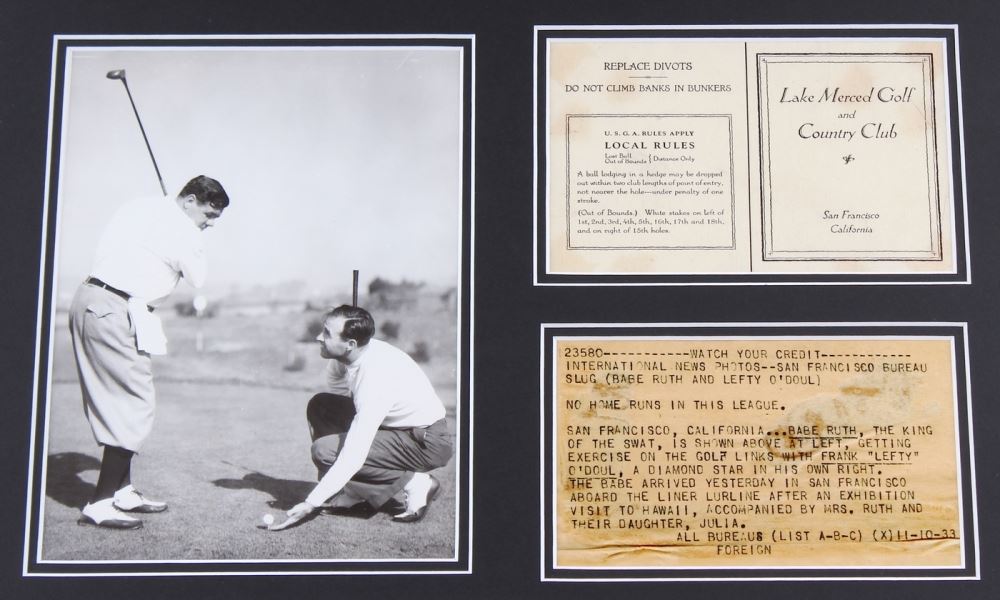 REPLACE DIVOTS
DO NOT CLIMB BANKS IN BUNKERS
U. S. G. A. RULES APPLY
LOCAL RULES
Lost Ball
Out of Bounds { Distance Only
A ball lodging in a hedge may be dropped
out within two club lengths of point of entry,
not nearer the hole—under penalty of one
stroke.
(Out of Bounds.) White stakes on left of
1st, 2nd, 3rd, 4th, 5th, 16th, 17th and 18th,
and on right of 15th holes.
Lake Merced Golf
and
Country Club
San Francisco
California
23580----------WATCH YOUR CREDIT-----------
INTERNATIONAL NEWS PHOTOS--SAN FRANCISCO BUREAU
SLUG (BABE RUTH AND LEFTY O'DOUL)
NO HOME RUNS IN THIS LEAGUE.
SAN FRANCISCO, CALIFORNIA...BABE RUTH, THE KING
OF THE SWAT, IS SHOWN ABOVE AT LEFT, GETTING
EXERCISE ON THE GOLF LINKS WITH FRANK "LEFTY"
O'DOUL, A DIAMOND STAR IN HIS OWN RIGHT.
THE BABE ARRIVED YESTERDAY IN SAN FRANCISCO
ABOARD THE LINER LURLINE AFTER AN EXHIBITION
VISIT TO HAWAII, ACCOMPANIED BY MRS. RUTH AND
THEIR DAUGHTER, JULIA.
ALL BUREAUS (LIST A-B-C) (X)11-10-33
FOREIGN